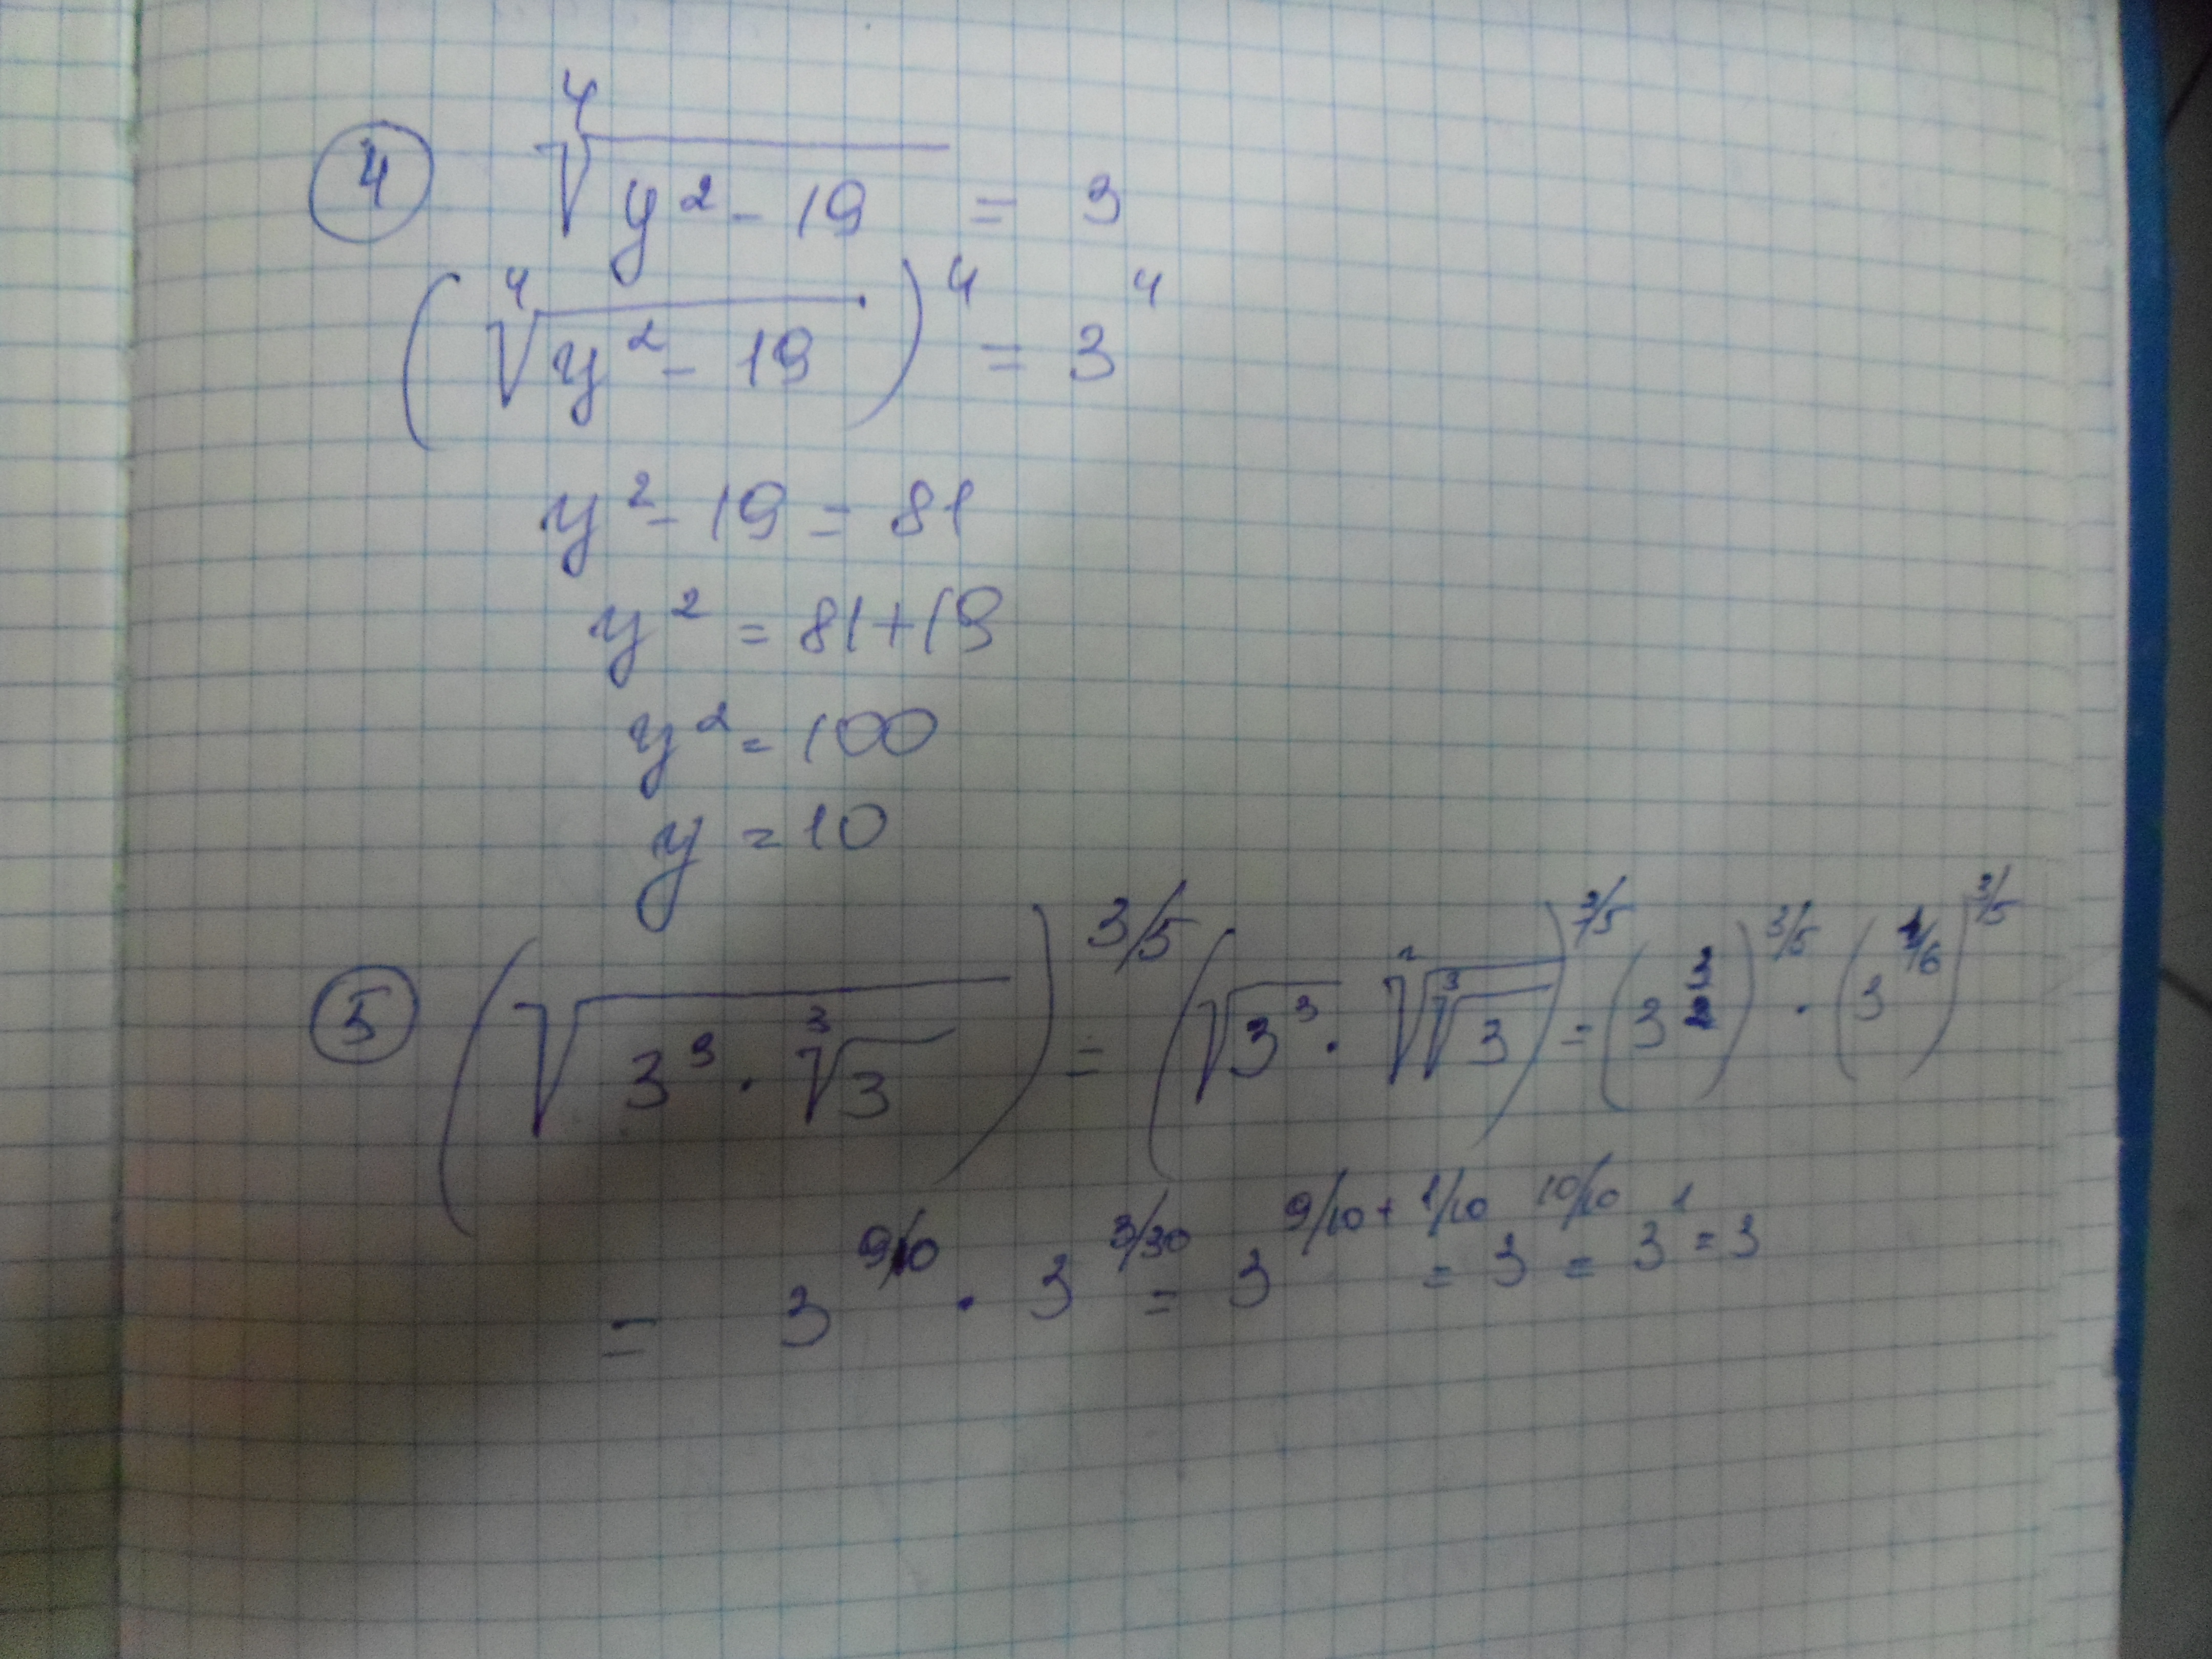 ④ ⁴√(y² - 19) = 3
(⁴√(y² - 19))⁴ = 3⁴
y² - 19 = 81
y² = 81 + 19
y² = 100
y = 10
⑤ (√(3³ · ³√3))^(3/5) = (√3³ · ²√(³√3))^(3/5) = (3^(3/2))^(3/5) · (3^(1/6))^(3/5)
= 3^(9/10) · 3^(3/30) = 3^(9/10 + 1/10) = 3^(10/10) = 3¹ = 3